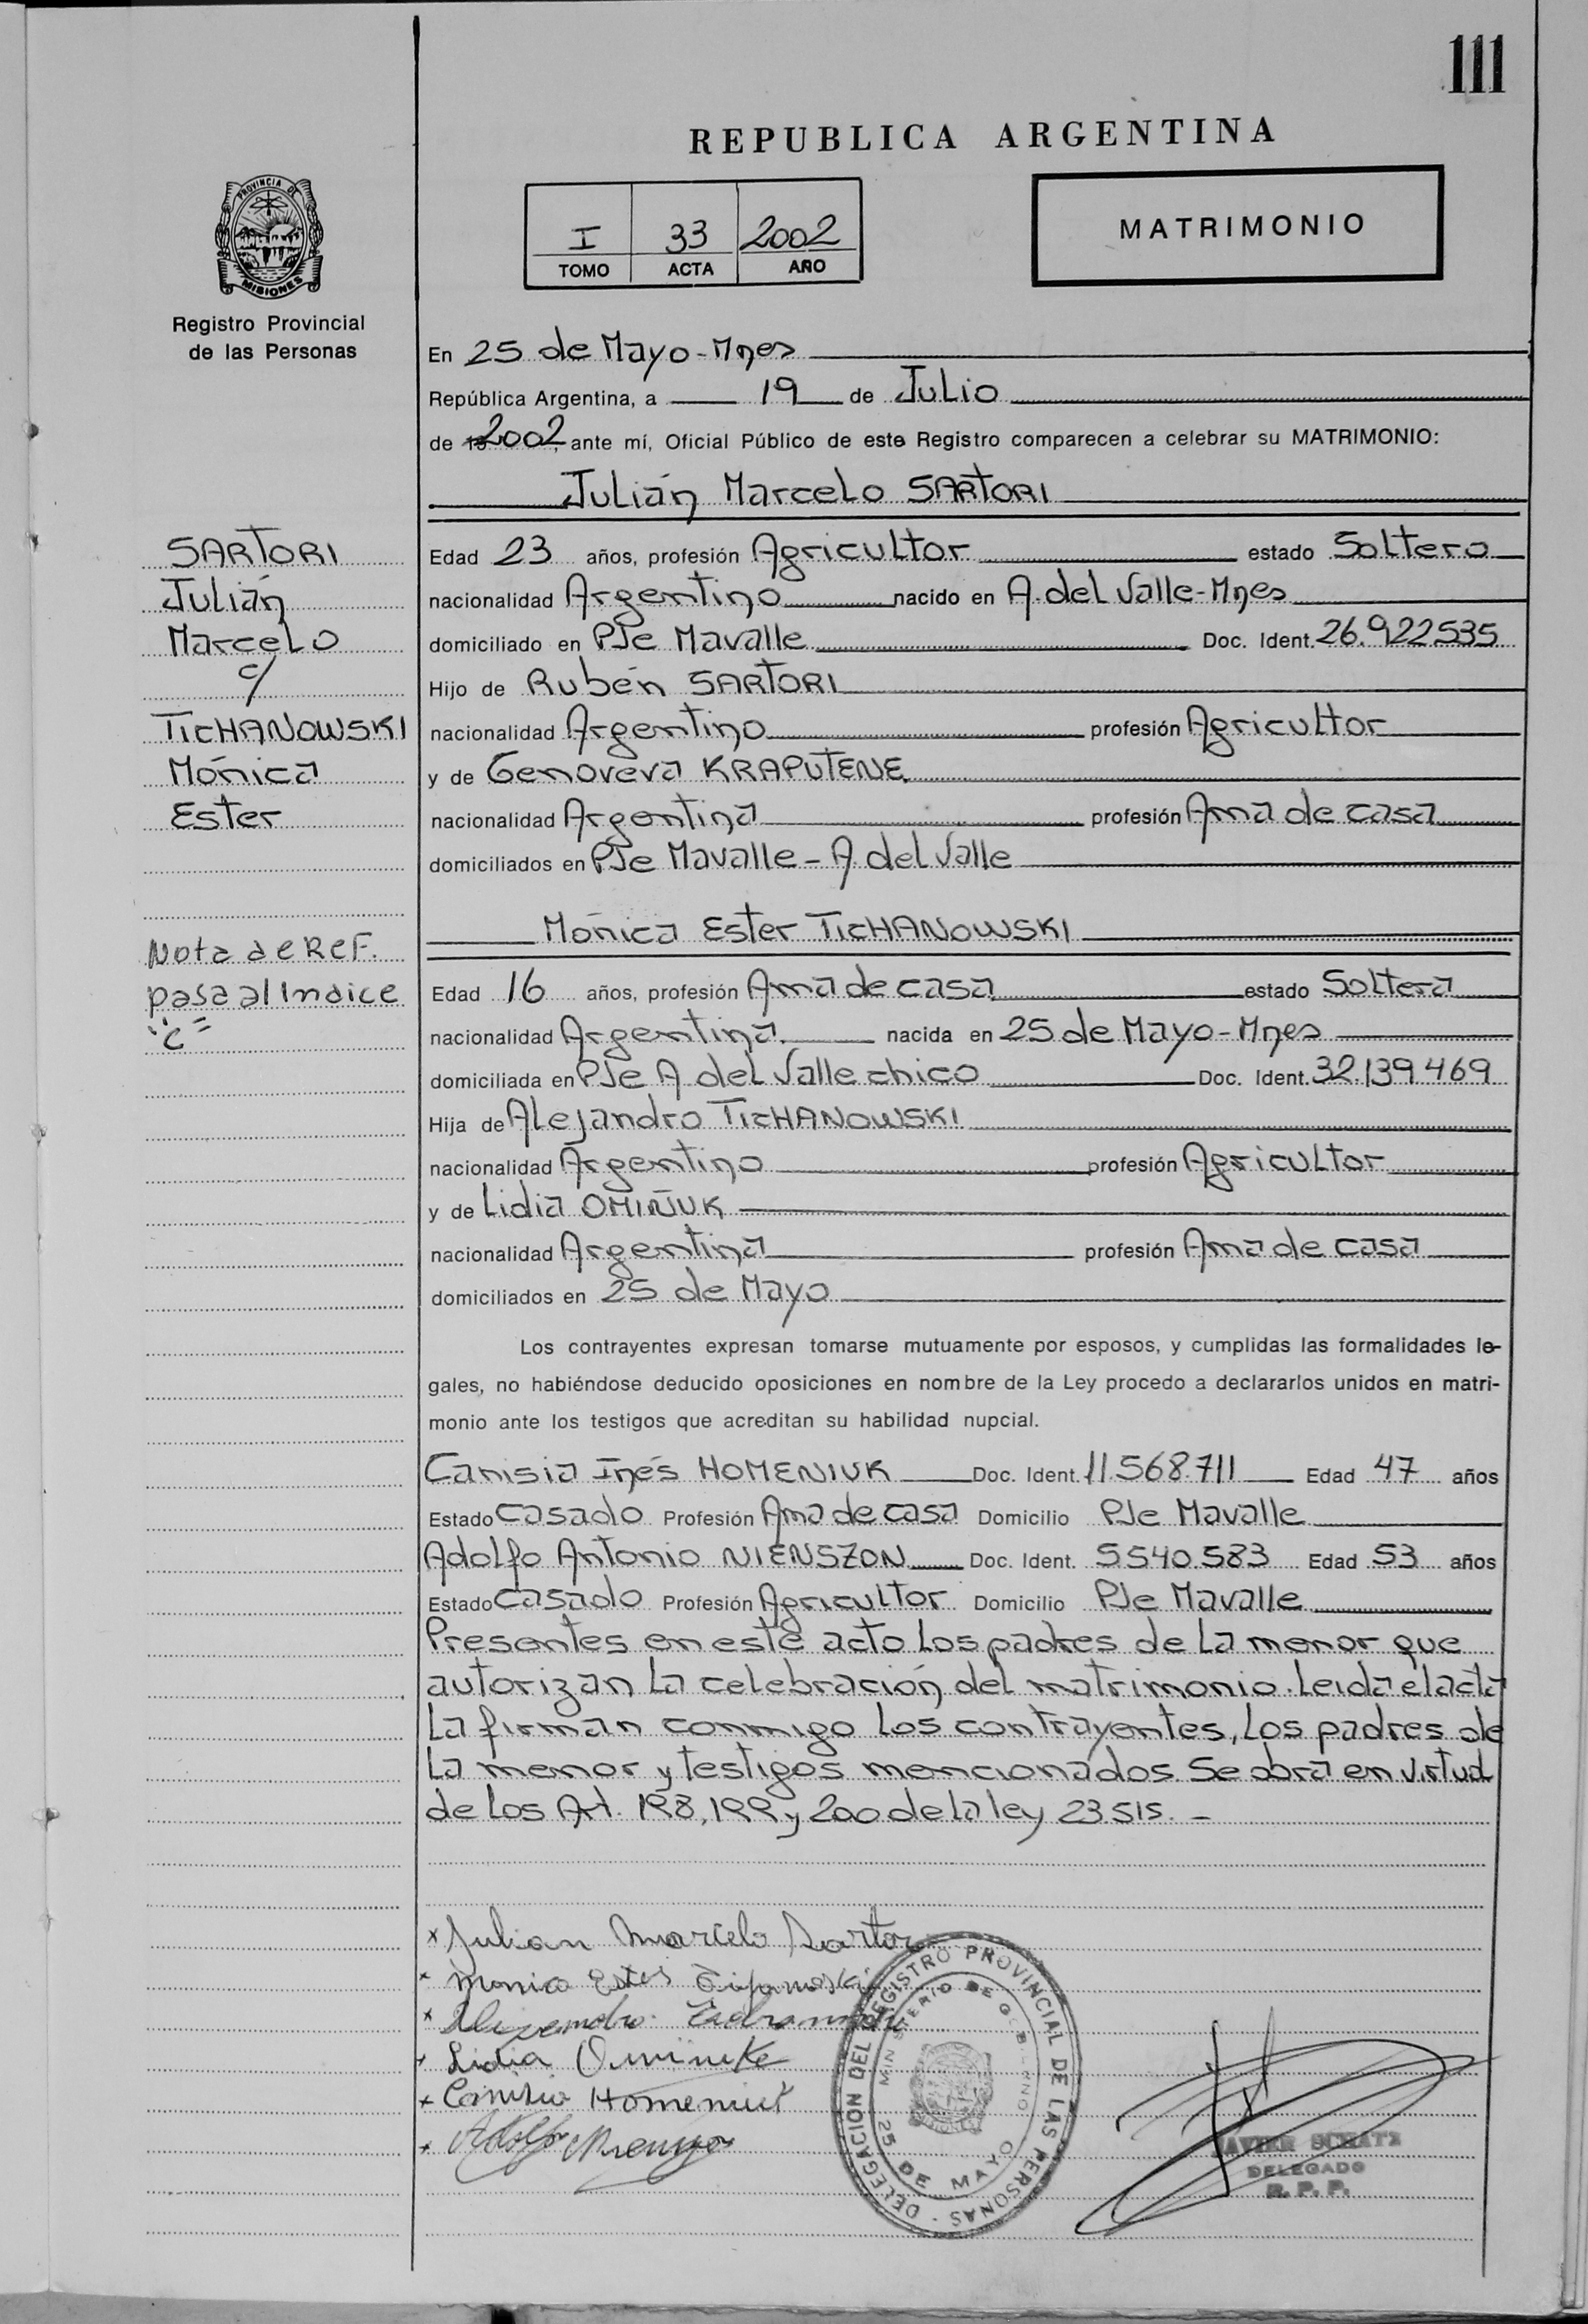 111
REPUBLICA ARGENTINA
PROVINCIA DE
MISIONES
Registro Provincial
de las Personas
I 33 2002
TOMO ACTA AÑO
MATRIMONIO
En 25 de Mayo-Mnes
República Argentina, a 19 de Julio
de 2002, ante mí, Oficial Público de este Registro comparecen a celebrar su MATRIMONIO:
Julián Marcelo SARTORI
SARTORI
Julián
Marcelo
c/
TICHANOWSKI
Mónica
Ester
Edad 23 años, profesión Agricultor estado Soltero
nacionalidad Argentino nacido en A. del Valle-Mnes
domiciliado en PJe Mavalle Doc. Ident. 26.922535
Hijo de Rubén SARTORI
nacionalidad Argentino profesión Agricultor
y de Genoveva KRAPUTENE
nacionalidad Argentina profesión Ama de casa
domiciliados en PJe Mavalle - A. del Valle
Nota de Ref.
pasa al Indice
"C"
Mónica Ester TICHANOWSKI
Edad 16 años, profesión Ama de casa estado Soltera
nacionalidad Argentina nacida en 25 de Mayo-Mnes
domiciliada en PJe A del Valle chico Doc. Ident. 32.139469
Hija de Alejandro TICHANOWSKI
nacionalidad Argentino profesión Agricultor
y de Lidia OMIÑUK
nacionalidad Argentina profesión Ama de casa
domiciliados en 25 de Mayo
Los contrayentes expresan tomarse mutuamente por esposos, y cumplidas las formalidades le-
gales, no habiéndose deducido oposiciones en nombre de la Ley procedo a declararlos unidos en matri-
monio ante los testigos que acreditan su habilidad nupcial.
Canisia Inés HOMENIUK Doc. Ident. 11.568.711 Edad 47 años
Estado Casado Profesión Ama de casa Domicilio PJe Mavalle
Adolfo Antonio NIENSZON Doc. Ident. 5.540.583 Edad 53 años
Estado Casado Profesión Agricultor Domicilio PJe Mavalle
Presentes en este acto los padres de la menor que
autorizan la celebración del matrimonio. Leida el acta
la firman conmigo los contrayentes, los padres de
la menor y testigos mencionados. Se obra en virtud
de los Art. 198, 199 y 200 de la ley 23.515. -
x Julian Marcelo Sartor
x Monica Ester
x
x Lidia
x Canisia Homeniuk
x Adolfo
DELEGACION DEL REGISTRO PROVINCIAL DE LAS PERSONAS
MINISTERIO DE GOBIERNO
25 DE MAYO
JAVIER SCHATZ
DELEGADO
R. P. P.